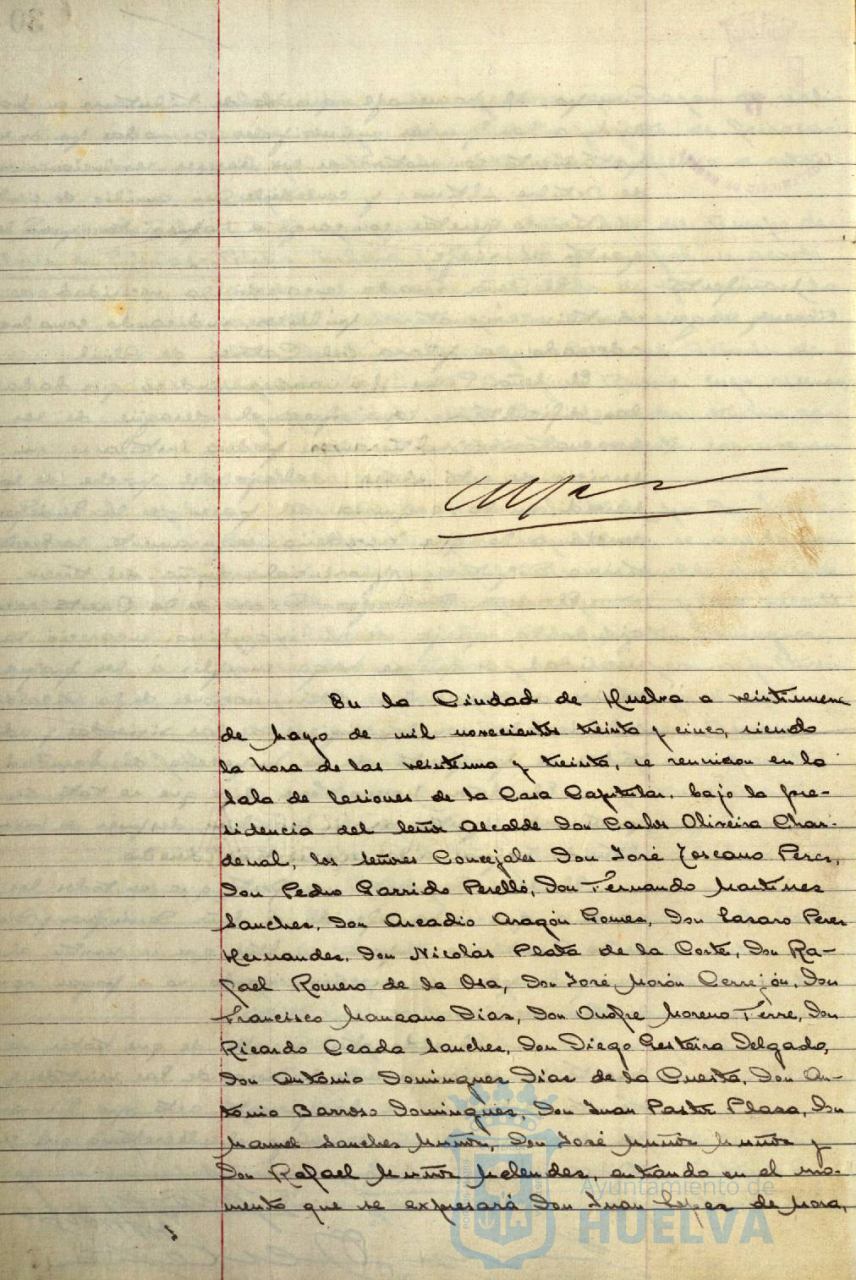 En la Ciudad de Huelva a veintinueve
de Mayo de mil novecientos treinta y cinco, siendo
la hora de las veintiuna y treinta, se reunieron en la
Sala de Sesiones de la Casa Capitular, bajo la pre-
sidencia del Señor Alcalde Don Carlos Oliveira Char-
denal, los Señores Concejales Don José Toscano Perez,
Don Pedro Garrido Perelló, Don Fernando Martinez
Sanchez, Don Arcadio Aragón Gomez, Don Lazaro Perez
Hernandez, Don Nicolás Plata de la Corte, Don Ra-
fael Romero de la Osa, Don José Morón Cerrejón, Don
Francisco Manzano Diaz, Don Onofre Moreno Terre, Don
Ricardo Ceada Sanchez, Don Diego Delgado,
Don Antonio Dominguez Diaz de la Cuesta, Don An-
tonio Barroso Dominguez, Don Juan Pastor Plaza, Don
Manuel Sanchez Muñoz, Don José Muñoz Muñoz y
Don Rafael Muñoz Melendez, entrando en el mo-
mento que se expresará Don Juan Lopez de Mora,
Ayuntamiento de
HUELVA